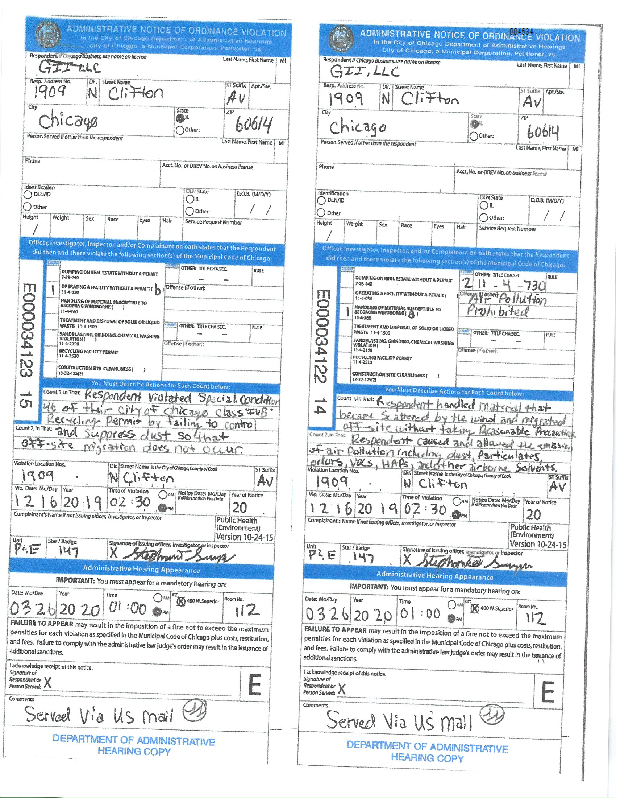 ADMINISTRATIVE NOTICE OF ORDINANCE VIOLATION
In the City of Chicago Department of Administrative Hearings
City of Chicago, a Municipal Corporation, Petitioner, vs.
Last Name, First Name MI
GII, LLC
Resp. Address No. Dir. Street Name St Suffix Apt/Ste.
1909 N Clifton Av
City State ZIP
Chicago IL 60614
Other:
Person Served if other than the respondent Last Name, First Name MI
Phone Acct. No. or DREV No. on Business License
Identification
DL#/ID DL#/State D.O.B. (M/D/Y)
Other IL
Other / /
Height Weight Sex Race Eyes Hair Service Request Number
/
Officer, Investigator, Inspector and/or Complainant on oath states that the Respondent
did then and there violate the following section(s) of the Municipal Code of Chicago:
E000034123 15
DUMPING ON REAL ESTATE WITHOUT A PERMIT
OTHER: TITLE CHAP/SEC. RULE
1 OPERATING A FACILITY WITHOUT A PERMIT b
Offense (if other):
HANDLING OF MATERIAL SUSCEPTIBLE TO BECOMING WINDBORNE
TREATMENT AND DISPOSAL OF SOLID OR LIQUID WASTE
SANDBLASTING, GRINDING, CHEMICAL WASHING VIOLATION
RECYCLING FACILITY PERMIT
CONSTRUCTION SITE CLEANLINESS
You Must Describe Actions for Each Count below:
Count 1 in that: Respondent Violated Special Condition
46 of their city of chicago class IVB
Recycling Permit by failing to control
Count 2 in that: and suppress dust so that
off-site migration does not occur
Violation Location Nos. Dir. Street Name in the City of Chicago, County of Cook St Suffix
1909 N Clifton Av
Vio. Date: Mo/Day Year Time of Violation Notice Date: Mo/Day Year of Notice
12 16 2019 02:30 20
Complainant's Name if not issuing officer, investigator, or inspector
Public Health
(Environment)
Version 10-24-15
Unit Star / Badge Signature of issuing officer, investigator or inspector
P&E 147 X
Administrative Hearing Appearance
IMPORTANT: You must appear for a mandatory hearing on:
Date: Mo/Day Year Time 400 W. Superior Room No.
03 26 2020 01:00 112
FAILURE TO APPEAR may result in the imposition of a fine not to exceed the maximum
penalties for each violation as specified in the Municipal Code of Chicago plus costs, restitution,
and fees. Failure to comply with the administrative law judge's order may result in the issuance of
additional sanctions.
I acknowledge receipt of this notice.
Signature of
Respondent or
Person Served: X
E
Comments
Served Via US mail
DEPARTMENT OF ADMINISTRATIVE
HEARING COPY
ADMINISTRATIVE NOTICE OF ORDINANCE VIOLATION
In the City of Chicago Department of Administrative Hearings
City of Chicago, a Municipal Corporation, Petitioner, vs.
Last Name, First Name MI
GII, LLC
Resp. Address No. Dir. Street Name St Suffix Apt/Ste.
1909 N Clifton Av
City State ZIP
Chicago 60614
Other:
Person Served if other than the respondent Last Name, First Name MI
Phone Acct. No. or DREV No. on Business License
Identification
DL#/ID DL#/State D.O.B. (M/D/Y)
Other IL
Other / /
Height Weight Sex Race Eyes Hair Service Request Number
/
Officer, Investigator, Inspector and/or Complainant on oath states that the Respondent
did then and there violate the following section(s) of the Municipal Code of Chicago:
E000034122 14
DUMPING ON REAL ESTATE WITHOUT A PERMIT
OTHER: TITLE CHAP/SEC. RULE
2 11-4-730
OPERATING A FACILITY WITHOUT A PERMIT
Air Pollution
Prohibited
1 HANDLING OF MATERIAL SUSCEPTIBLE TO BECOMING WINDBORNE
TREATMENT AND DISPOSAL OF SOLID OR LIQUID WASTE
OTHER: TITLE CHAP/SEC. RULE
SANDBLASTING, GRINDING, CHEMICAL WASHING VIOLATION
Offense (if other):
RECYCLING FACILITY PERMIT
CONSTRUCTION SITE CLEANLINESS
You Must Describe Actions for Each Count below:
Count 1 in that: Respondent handled Material that
became scattered by the wind and migrated
off-site without taking Reasonable Precautions
Count 2 in that: Respondent caused and allowed the emission
of air Pollution including dust, Particulates,
odors, VOCs, HAPs, and other airborne Solvents.
Violation Location Nos. Dir. Street Name in the City of Chicago, County of Cook St Suffix
1909 N Clifton Av
Vio. Date: Mo/Day Year Time of Violation Notice Date: Mo/Day Year of Notice
12 16 2019 02:30 20
Complainant's Name if not issuing officer, investigator, or inspector
Public Health
(Environment)
Version 10-24-15
Unit Star / Badge Signature of issuing officer, investigator or inspector
P&E 147 X
Administrative Hearing Appearance
IMPORTANT: You must appear for a mandatory hearing on:
Date: Mo/Day Year Time 400 W. Superior Room No.
03 26 2020 01:00 112
FAILURE TO APPEAR may result in the imposition of a fine not to exceed the maximum
penalties for each violation as specified in the Municipal Code of Chicago plus costs, restitution,
and fees. Failure to comply with the administrative law judge's order may result in the issuance of
additional sanctions.
I acknowledge receipt of this notice.
Signature of
Respondent or
Person Served: X
E
Comments
Served Via US mail
DEPARTMENT OF ADMINISTRATIVE
HEARING COPY